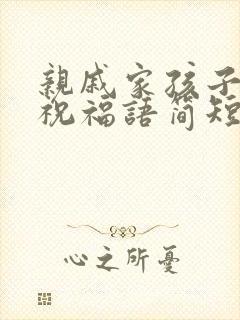 親戚家孩子
祝福語简短
心之所憂